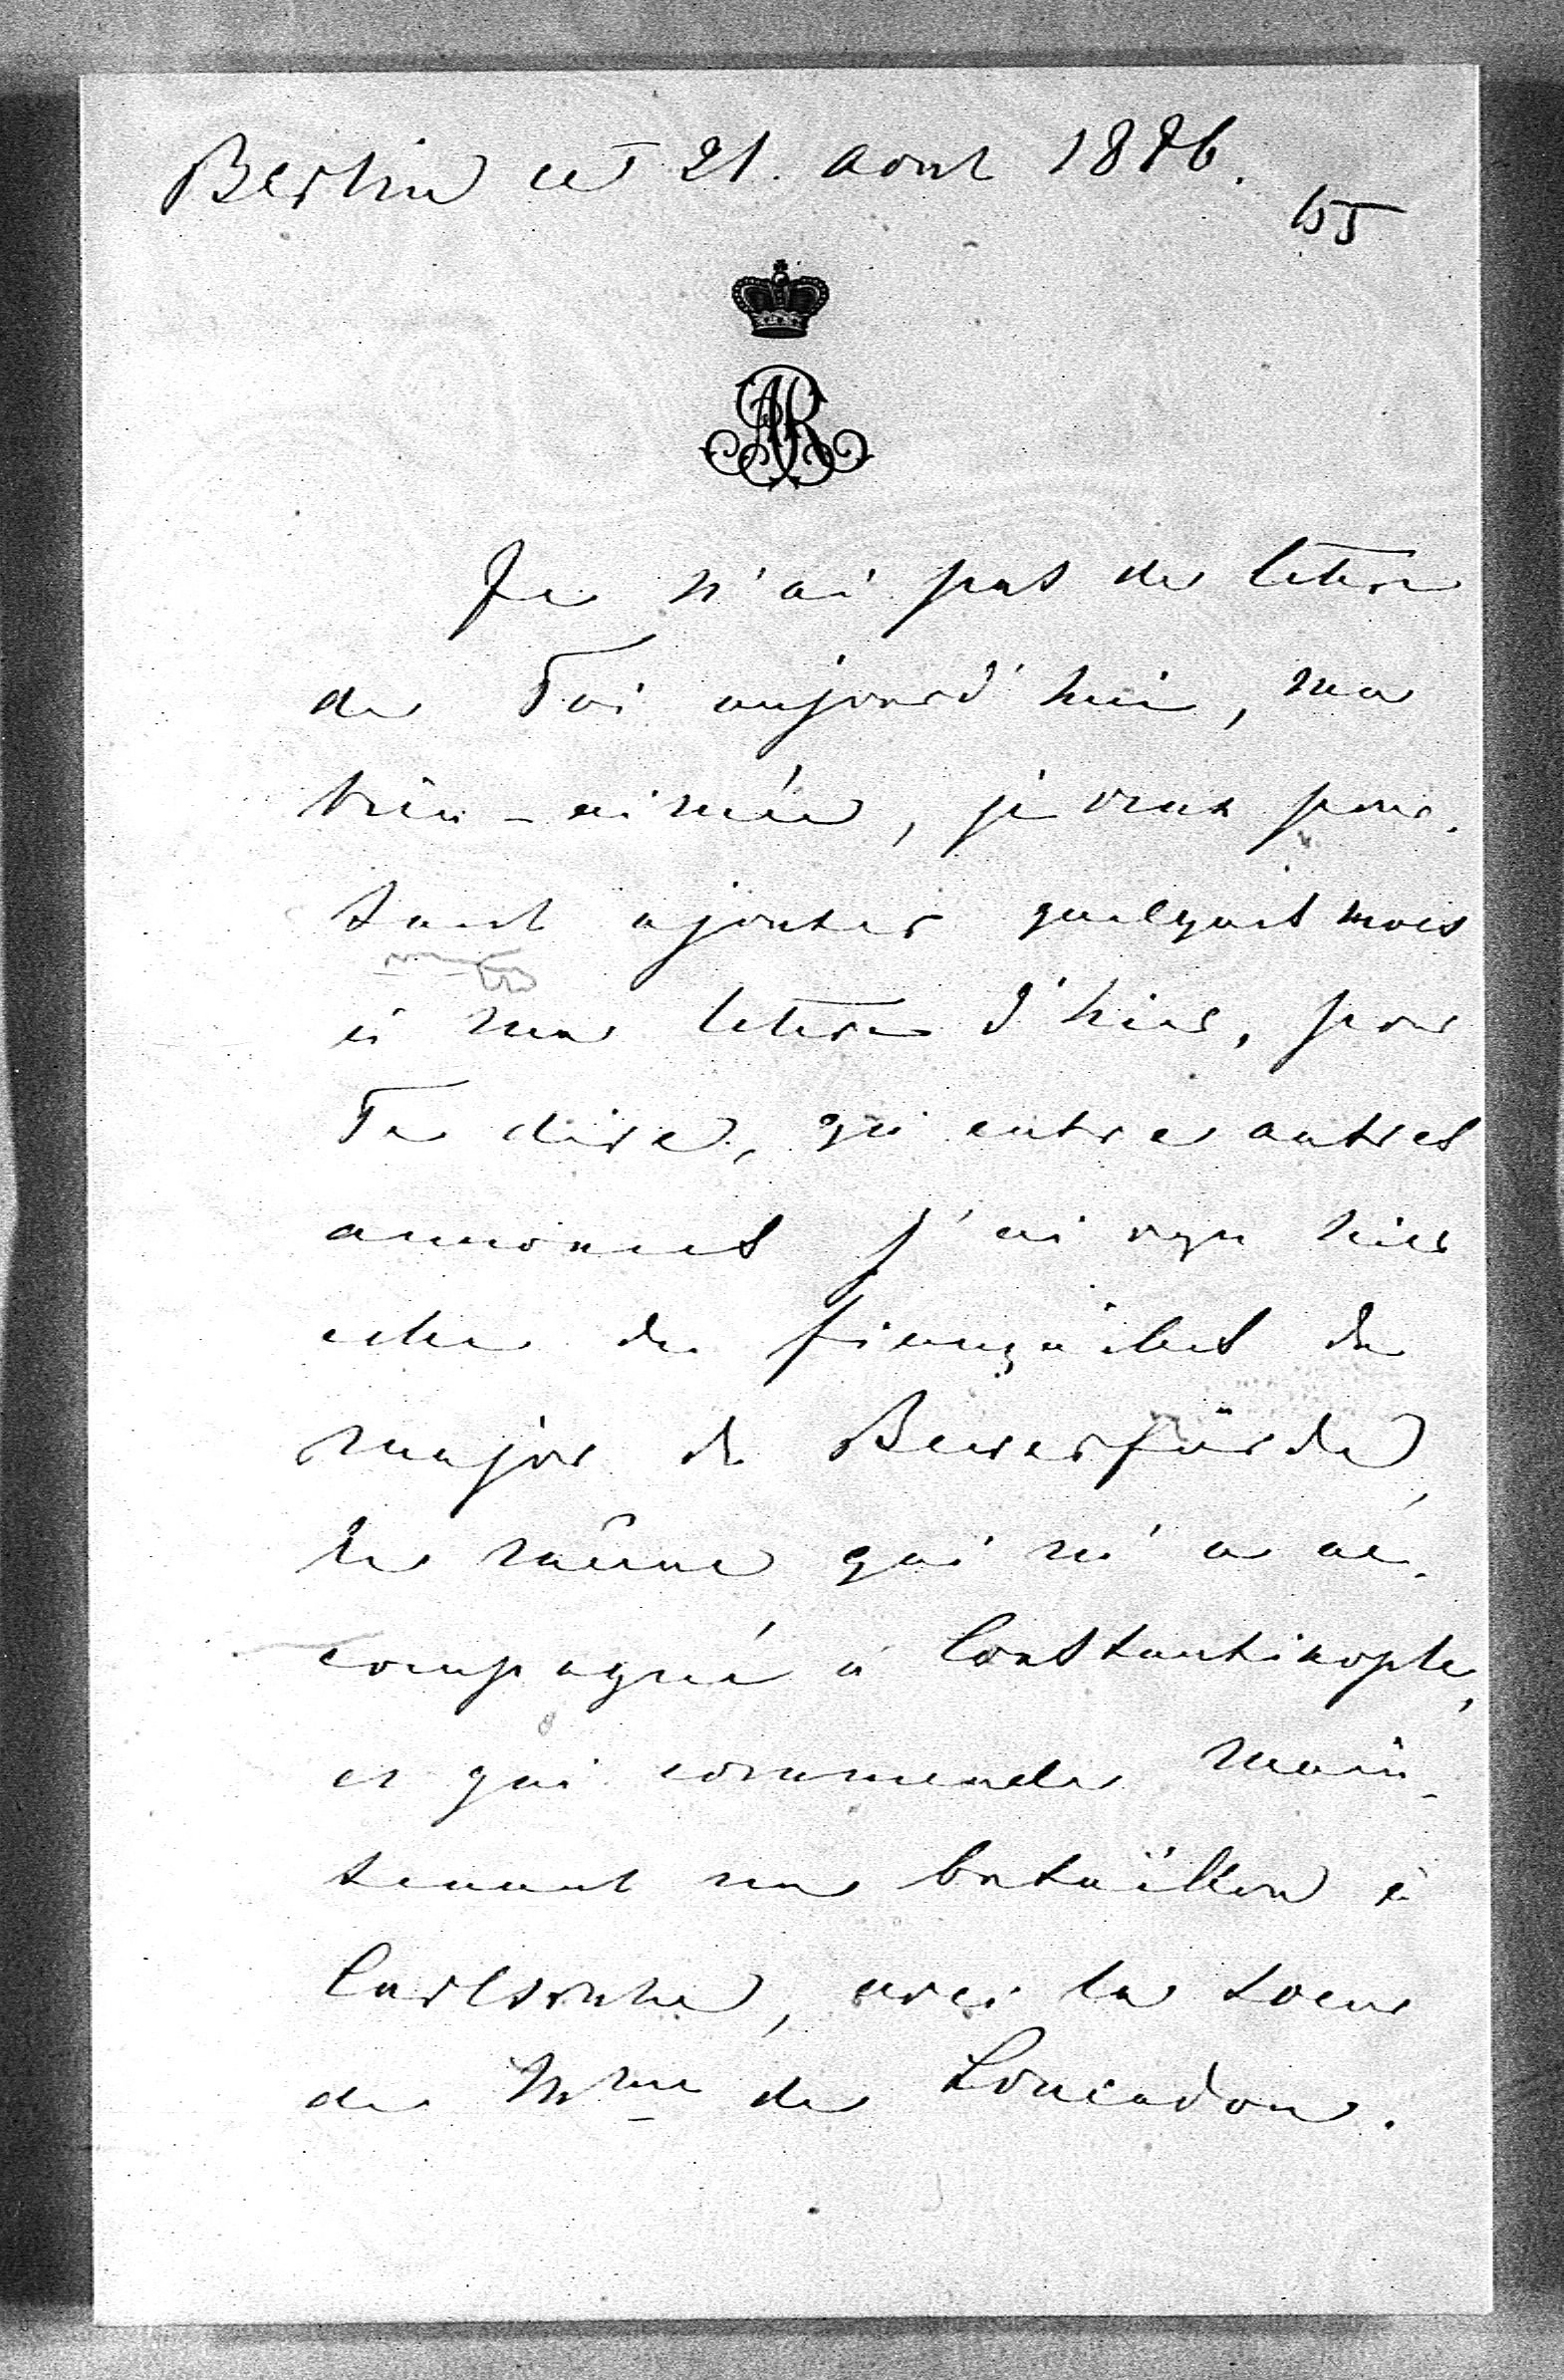 Berlin ce 21. aout 1876.
155
AR
Je n'ai pas de lettre
de Toi aujourd'hui, ma
bien-aimée, je veux pour-
tant ajouter quelques mots
à ma lettre d'hier, pour
Te dire, qu'entre autres
annonces j'ai reçu hier
celle des fiançailles du
major de Beverförde,
le même qui m'a ac-
compagné à Constantinople,
et qui commande main-
tenant un bataillon à
Carlsruhe, avec la soeur
de Mme de Loucadou.